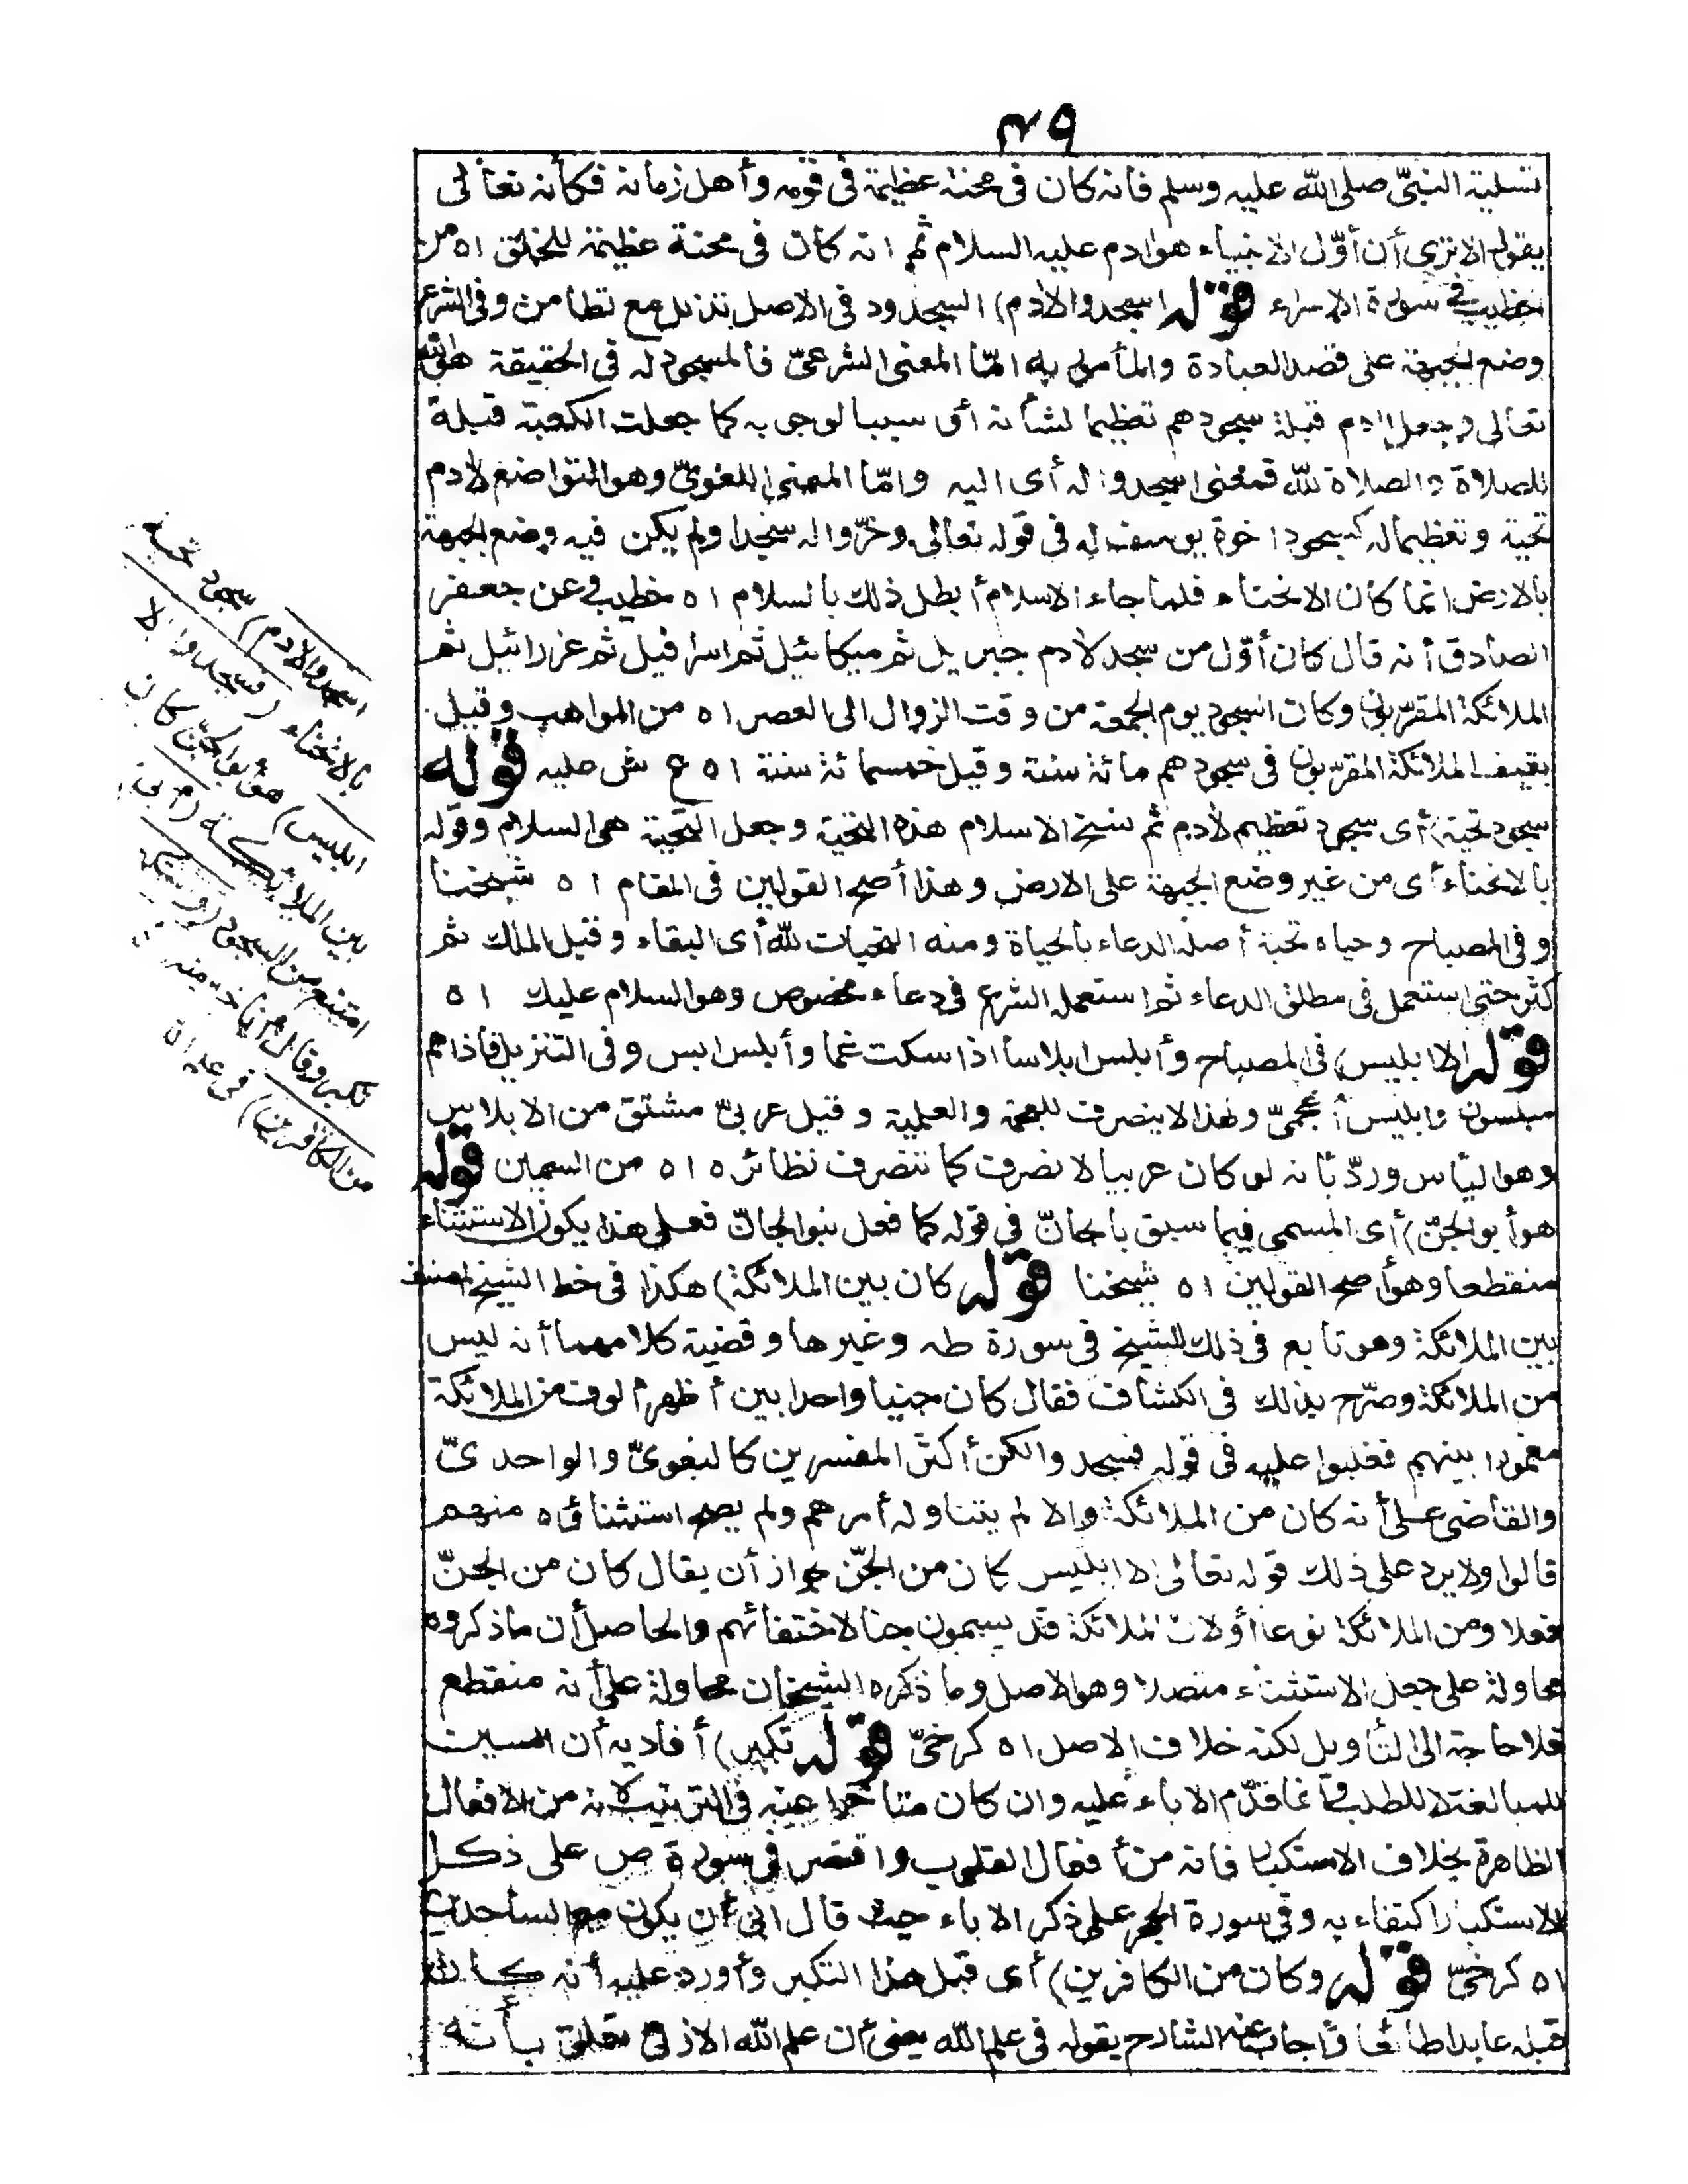 ٤٩
تسلية النبيّ صلى الله عليه وسلم فانه كان فى محنة عظيمة فى قومه وأهل زمانه فكأنه تعالى
يقول الا ترى أن أوّل الانبياء هو ادم عليه السلام ثم انه كان فى محنة عظيمة للخلق اه من
خطيب فى سورة الاسراء قوله اسجدوا لادم) السجود فى الاصل تذلل مع تطامن وفى الشرع
وضع الجبهة على قصد العبادة والمأمور به امّا المعنى الشرعىّ فالمسجود له فى الحقيقة هو الله
تعالى وجعل ادم قبلة سجودهم تعظيما لشأنه أو سببا لوجوبه كما جعلت الكعبة قبلة
للصلاة والصلاة لله فمعنى اسجدوا له أى اليه وامّا المعنى اللغوىّ وهو التواضع لادم
تحية وتعظيما له كسجود اخوة يوسف له فى قوله تعالى وخرّوا له سجدا ولم يكن فيه وضع الجبهة
بالارض انما كان الانحناء فلما جاء الاسلام أبطل ذلك بالسلام اه خطيب وعن جعفر
الصادق أنه قال كان أوّل من سجد لادم جبريل ثم ميكائيل ثم اسرافيل ثم عزرائيل ثم
الملائكة المقرّبون وكان السجود يوم الجمعة من وقت الزوال الى العصر اه من المواهب وقيل
بقيت الملائكة المقرّبون فى سجودهم مائة سنة وقيل خمسمائة سنة اه ع ش عليه قوله
سجود تحية) أى سجود تعظيم لادم ثم نسخ الاسلام هذه التحية وجعل التحية هى السلام وقوله
بالانحناء أى من غير وضع الجبهة على الارض وهذا أصح القولين فى المقام اه شيخنا
وفى المصباح وحياه تحية أصله الدعاء بالحياة ومنه التحيات لله أى البقاء وقيل الملك ثم
كثر حتى استعمل فى مطلق الدعاء ثم استعمله الشرع فى دعاء مخصوص وهو السلام عليك اه
قوله الا ابليس) فى المصباح وأبلس ابلاسا اذا سكت غما وأبلس ايس وفى التنزيل فاذا هم
مبلسون وابليس أعجمىّ ولهذا لا ينصرف للعجمة والعلمية وقيل عربىّ مشتق من الابلاس
وهو اليأس وردّ بأنه لو كان عربيا لانصرف كما تنصرف نظائره اه من السمين قوله
هو أبو الجنّ) أى المسمى فيما سبق بالجانّ فى قوله كما فعل بنو الجانّ فعلى هذا يكون الاستثناء
منقطعا وهو أصح القولين اه شيخنا قوله كان بين الملائكة) هكذا فى خط الشيخ المصنف
بين الملائكة وهو تابع فى ذلك للشيخ فى سورة طه وغيرها وقضية كلامهما أنه ليس
من الملائكة وصرّح بذلك فى الكشاف فقال كان جنيا واحدا بين أظهر ألوف من الملائكة
مغمورا بينهم فغلبوا عليه فى قوله فسجدوا لكن أكثر المفسرين كالبغوىّ والواحدىّ
والقاضى على أنه كان من الملائكة والا لم يتناوله أمرهم ولم يصح استثناؤه منهم
قالوا ولا يرد على ذلك قوله تعالى الا ابليس كان من الجنّ لجواز أن يقال كان من الجنّ
فعلا ومن الملائكة نوعا أو لان الملائكة قد يسمون جنا لاختفائهم والحاصل أن ما ذكروه
محاولة على جعل الاستثناء متصلا وهو الاصل وما ذكره الشيخان محاولة على أنه منقطع
فلا حاجة الى التأويل لكنه خلاف الاصل اه كرخىّ قوله تكبر) أفاد به أن السين
للمبالغة لا للطلب وانما قدّم الاباء عليه وان كان متأخرا عنه فى الترتيب لانه من الافعال
الظاهرة بخلاف الاستكبار فانه من أفعال القلوب واقتصر فى سورة ص على ذكر
الاستكبار اكتفاء به وفى سورة الحجر على ذكر الاباء حيث قال أبى أن يكون مع الساجدين
اه كرخىّ قوله وكان من الكافرين) أى قبل هذا التكبر وأورد عليه أنه كان
قبله عابدا طائعا وأجاب عنه الشارح بقوله فى علم الله يعنى أن علم الله الازلى تعلق بأنه
اسجدوا لادم) سجود تحية
بالانحناء (فسجدوا الا
ابليس) هو أبو الجنّ كان
بين الملائكة (أبى)
امتنع من السجود (واستكبر)
تكبر وقال أنا خير منه
من الكافرين) فى علم الله